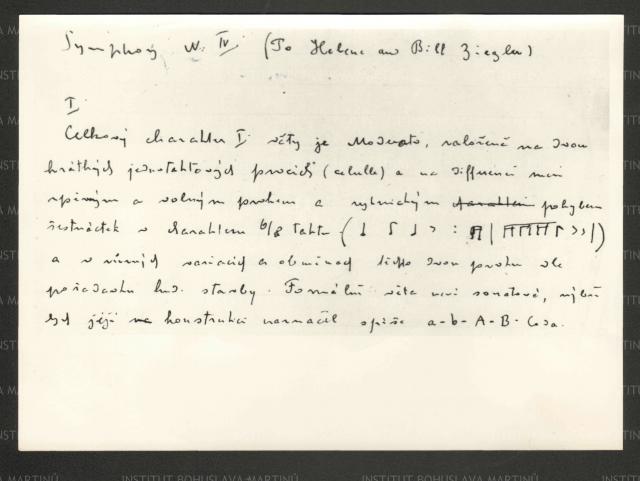 Symphony No IV (To Helene and Bill Ziegler)
I
Celkový charakter I. věty je Moderato, založené na dvou
krátkých jednotaktových prvcích (celulle) a na differenci mezi
zpěvným a volným prvkem a rytmickým charakterem pohybem
šestnáctek v charakteru 6/8 taktu
a v různých variacích a obměnách těchto dvou prvků dle
požadavku hud. stavby. Formálně věta není sonatová, nýbrž
její konstrukci naznačil spíše a-b-A-B-Coda.
INSTITUT BOHUSLAVA MARTINŮ